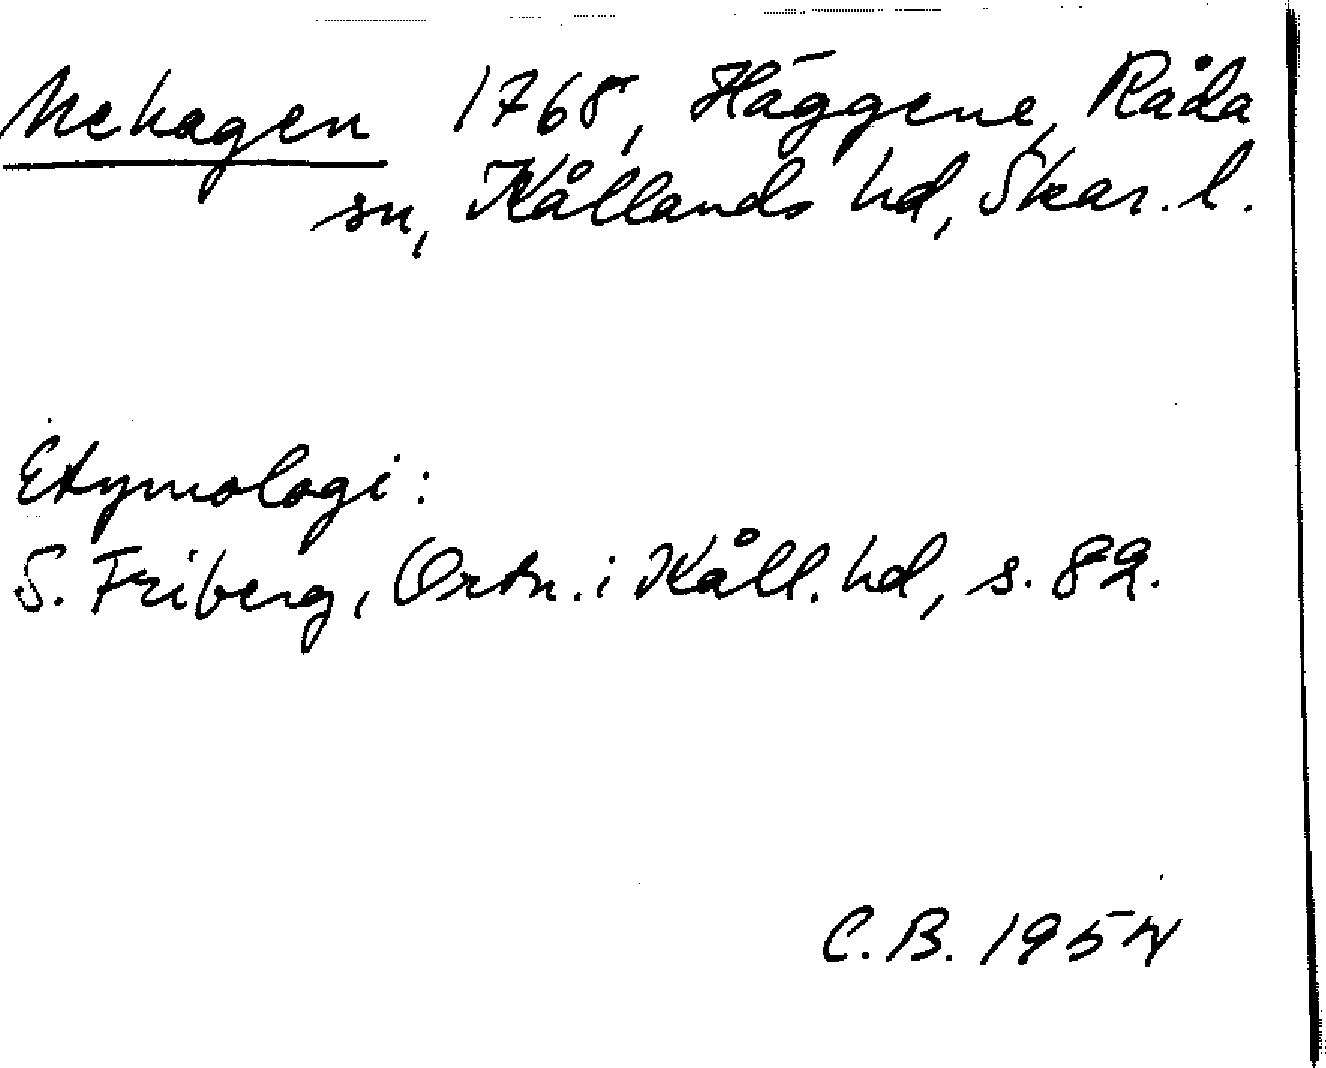 Nehagen 1768, Häggene, Råda
sn, Kållands hd, Skar. l.
Etymologi:
S. Friberg, Ortn. i Kåll. hd, s. 82.
C.B. 1954